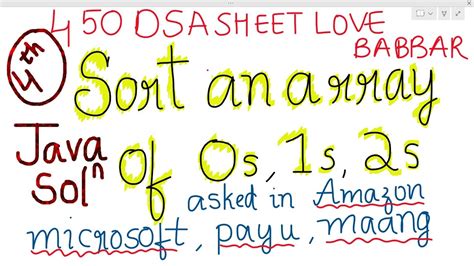 450 DSA SHEET LOVE
BABBAR
4th
Sort an array
Java
Solⁿ
Of 0s, 1s, 2s
asked in Amazon
microsoft, payu, maang